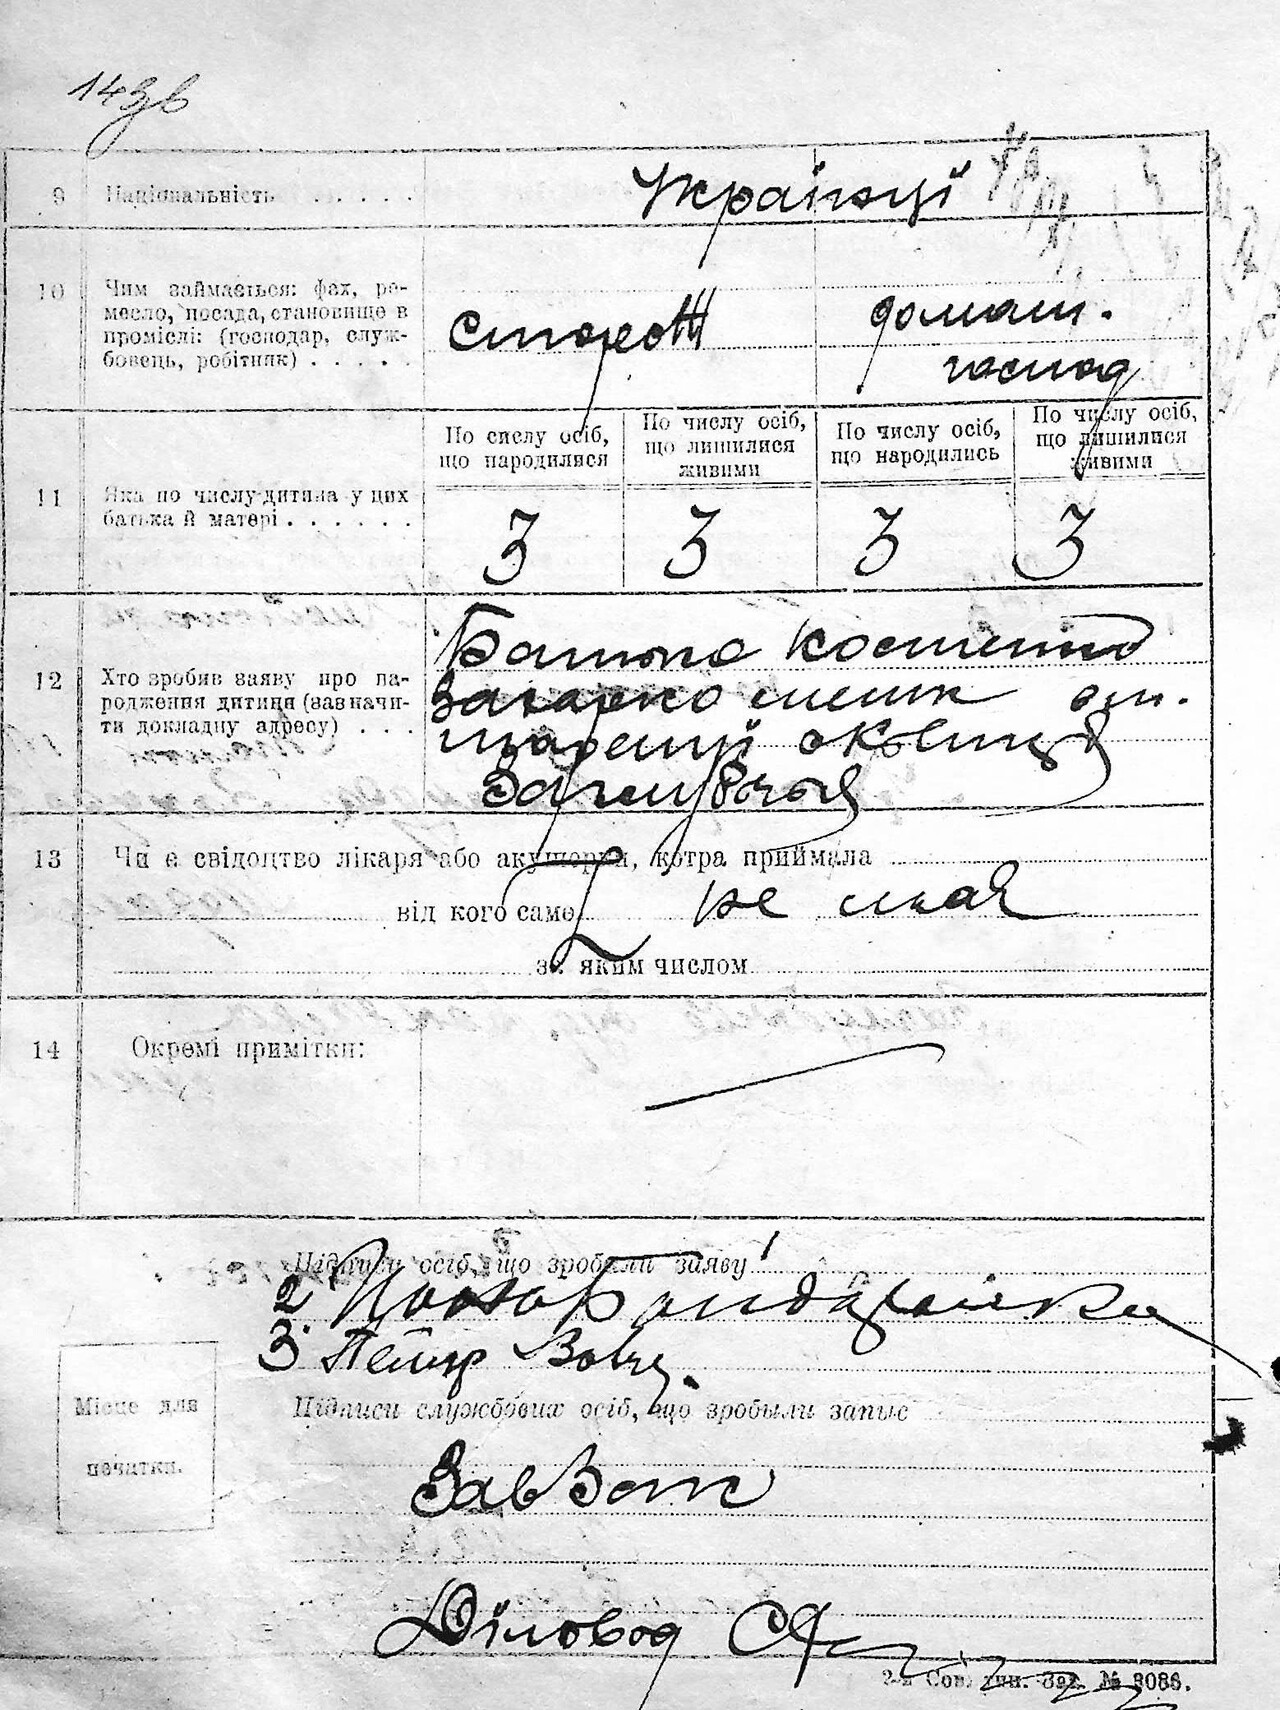 143в
9 Національність . . . . .
Українці
10 Чим займається: фах, ре-
месло, посада, становище в
проміслі: (господар, служ-
бовець, робітник) . . . . .
сторож
домаш.
господ
11 Яка по числу дитина у цих
батька й матері . . . . . .
По сислу осіб,
що народилися
По числу осіб,
що лишилися
живими
По числу осіб,
що народились
По числу осіб,
що лишилися
живими
3 3 3 3
12 Хто зробив заяву про на-
родження дитини (зазначи-
ти докладну адресу) . . .
Батько
13 Чи є свідоцтво лікаря або акушерки, котра приймала
від кого саме
не має
за яким числом
14 Окремі примітки:
Підписи осіб, що зробили заяву 1
2
3 Петир Вовч.
Місце для
печатки.
Підписи службових осіб, що зробыли запыс
Зав Загс
Діловод
2-а Сов. тип. Зак. № 3086.